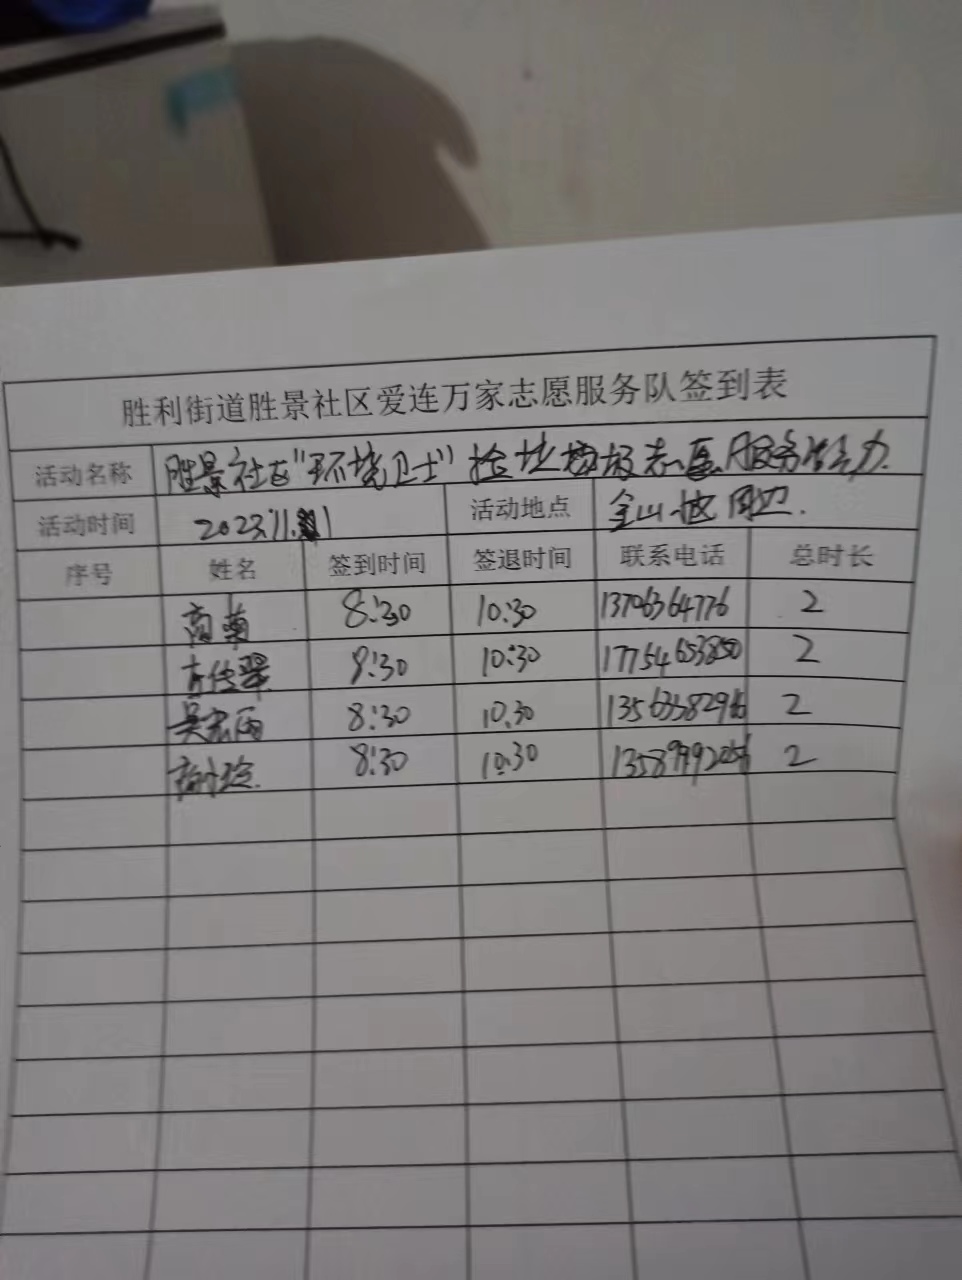 胜利街道胜景社区爱连万家志愿服务队签到表
活动名称 胜景社区“环境卫士”捡垃圾志愿服务活动
活动时间 2023.11.1 活动地点 金山坡周边.
序号 姓名 签到时间 签退时间 联系电话 总时长
8:30 10:30 13706364776 2
8:30 10:30 17754653850 2
吴宏雨 8:30 10.30 2
8:30 10:30 2